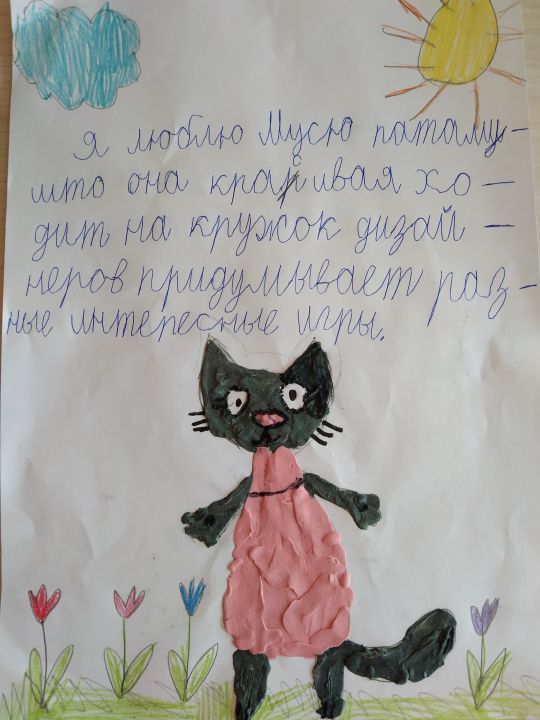 Я люблю Мусю патаму-
што она крас ивая хо-
дит на кружок дизай-
неров придумывает раз-
ные интересные игры.